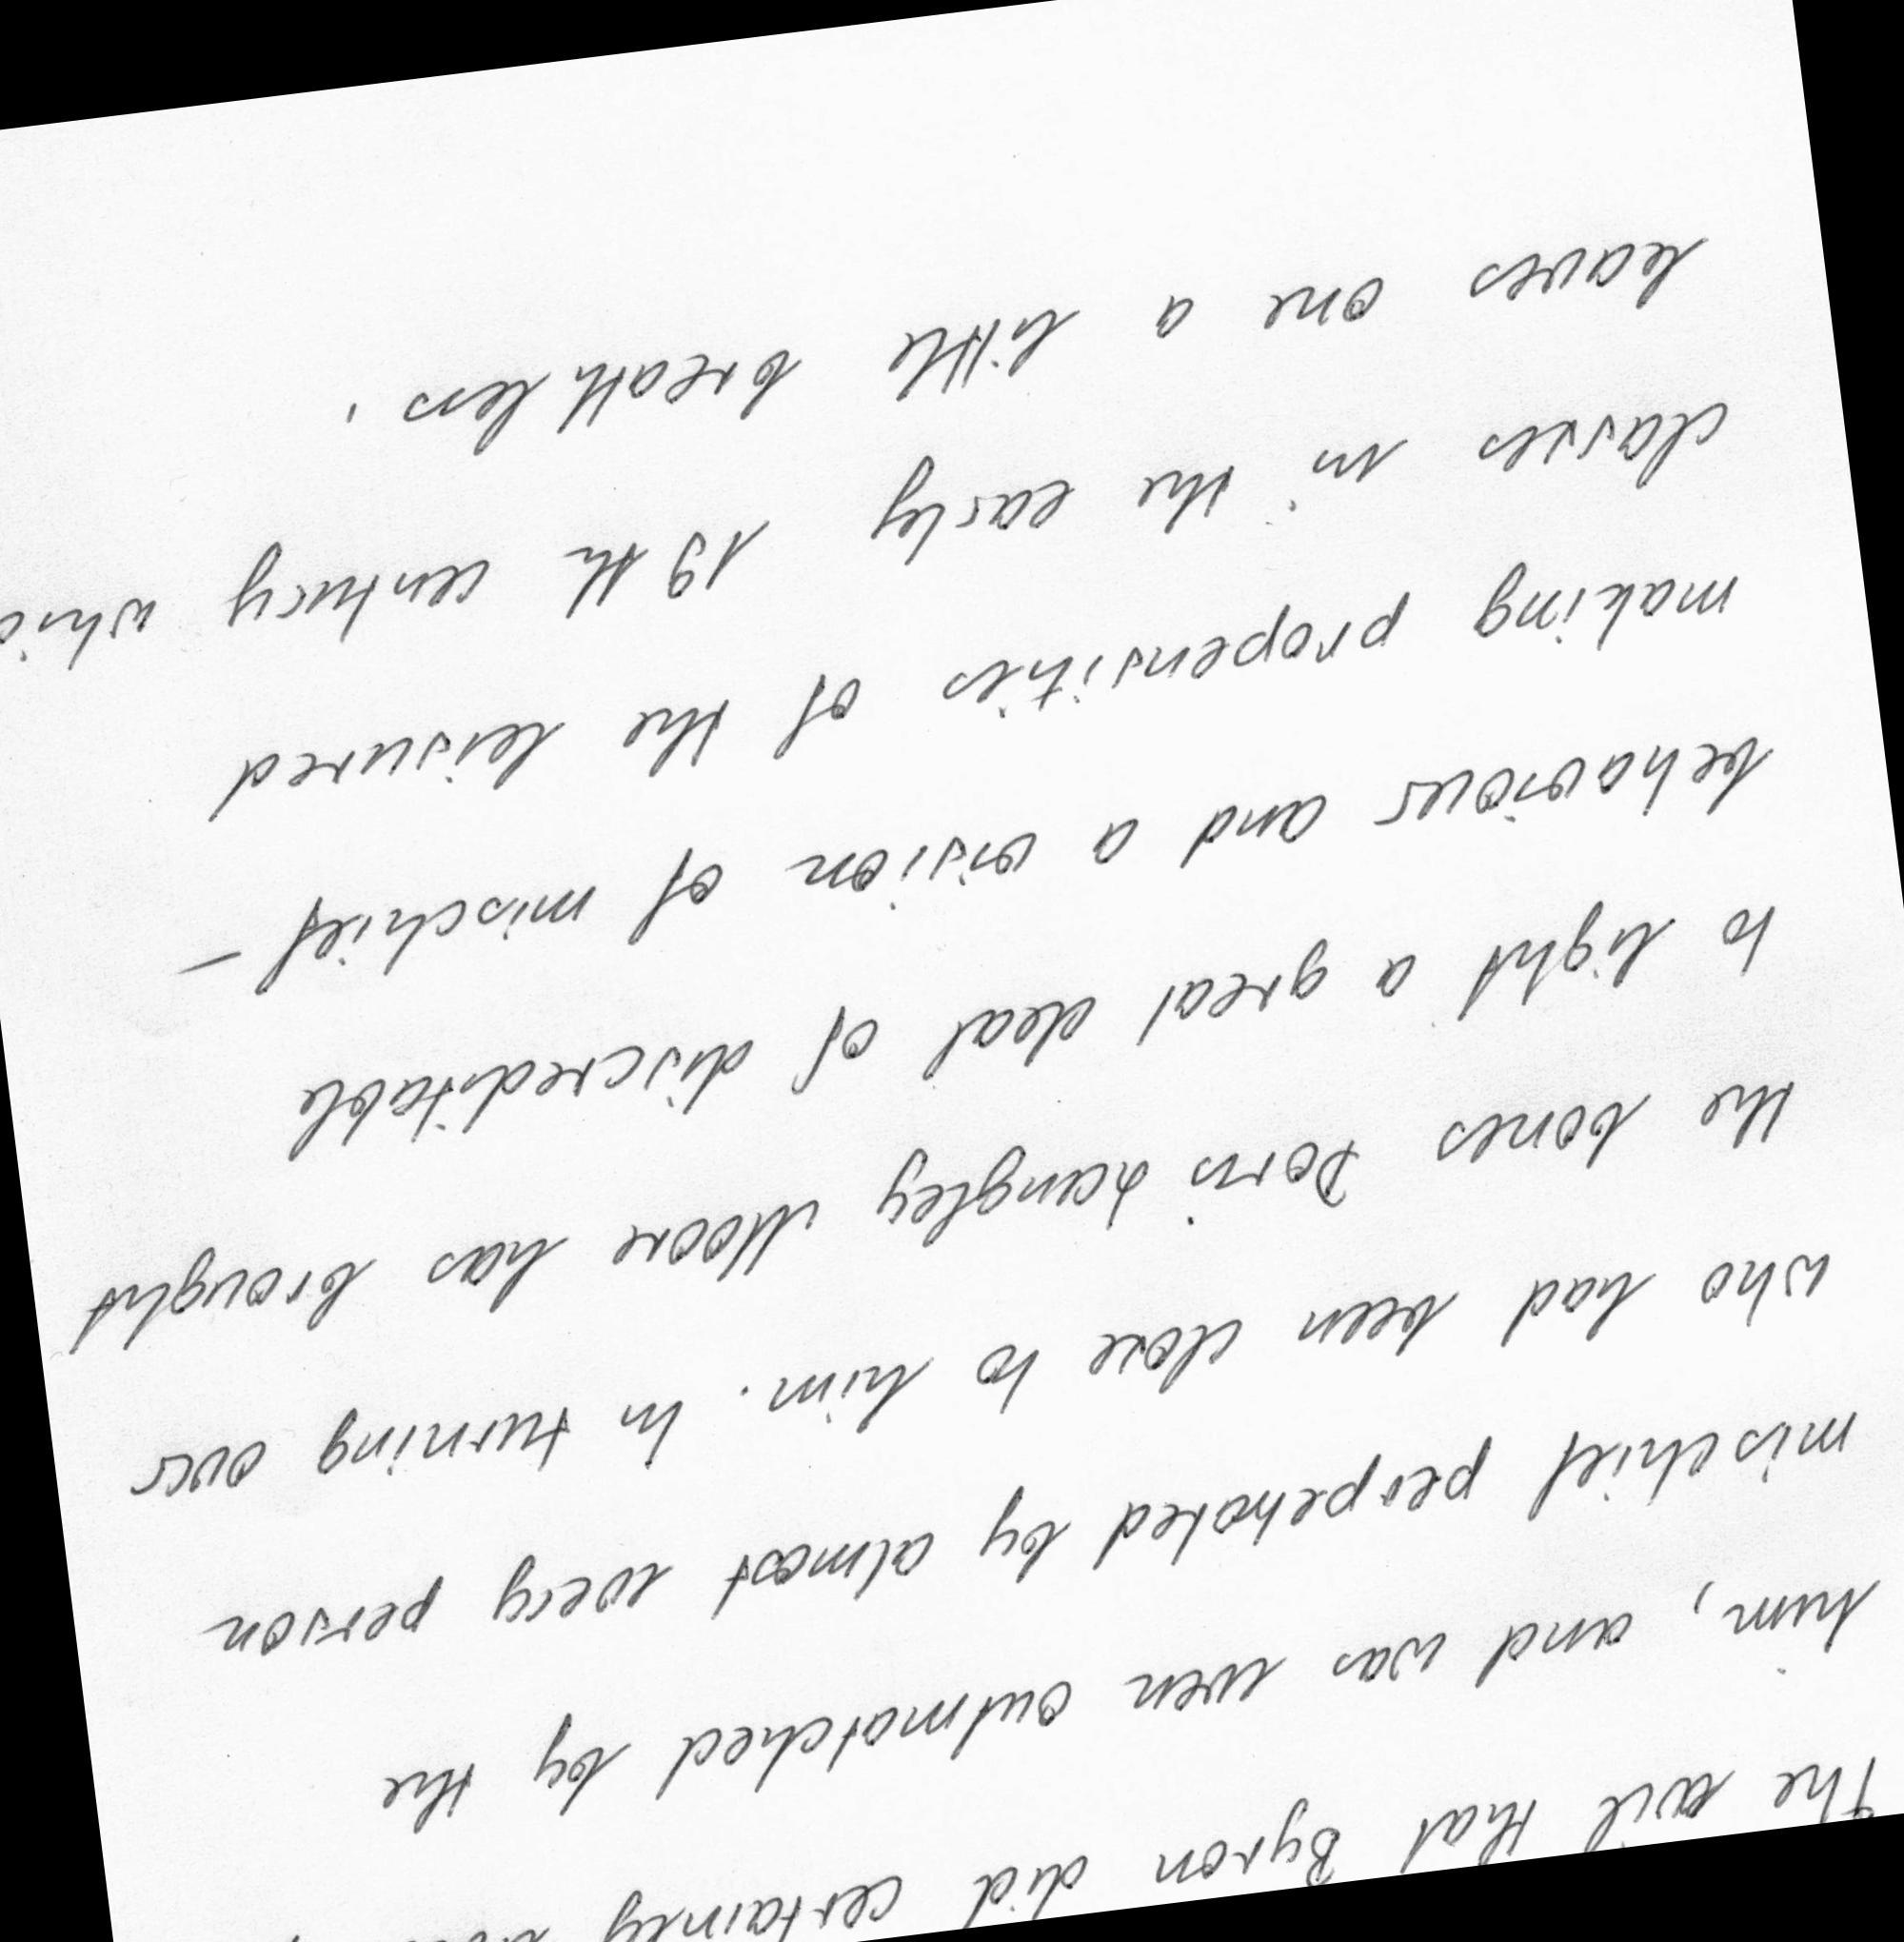 The evil that Byron did certainly
him, and was even outmatched by the
mischief perpetrated by almost every person
who had been close to him. In turning over
the bones Doris Langley Moore has brought
to light a great deal of discreditable
behaviour and a vision of mischief-
making propensities of the leisured
classes in the early 19th century whic
leaves one a little breathless.